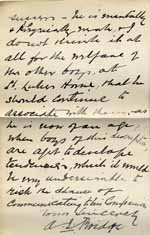 success - he is mentally
& physically weak, & I
do not think it at
all for the welfare of
the other boys, at
St. Lukes Home, that he
should continue to
associate with them - as
he is now of an age
when boys of this
are apt to develope
tendencies, which it would
be very undesirable to
risk the chance of
communicating to his Companions
Yours sincerely